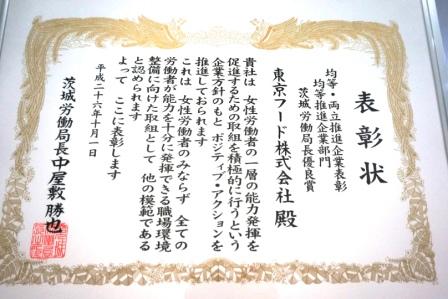 表彰状
均等・両立推進企業表彰
均等推進企業部門
茨城労働局長優良賞
東京フード株式会社 殿
貴社は 女性労働者の一層の能力発揮を
促進するための取組を積極的に行うという
企業方針のもと ポジティブ・アクションを
推進しておられます
これは 女性労働者のみならず 全ての
労働者が能力を十分に発揮できる職場環境
整備に向けた取組として 他の模範である
と認められます
よって ここに表彰します
平成二十六年十月一日
茨城労働局長 中屋敷 勝也